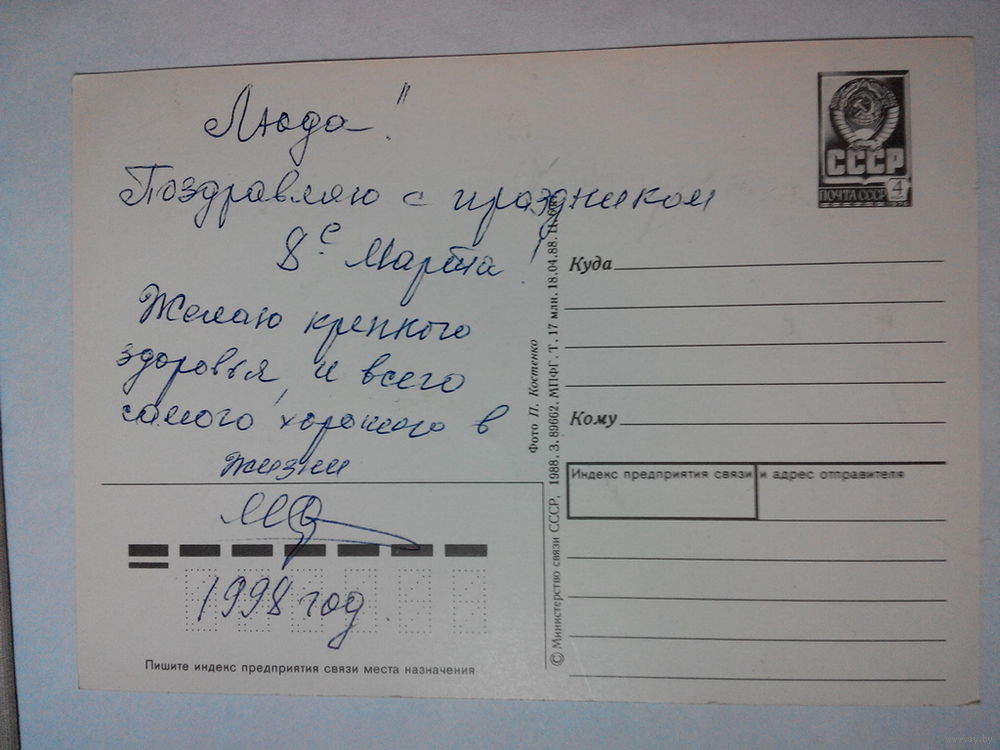 Люда!
Поздравляю с праздником
8е Марта!
Желаю крепкого
здоровья, и всего
самого хорошего в
жизни
1998 год.
Пишите индекс предприятия связи места назначения
СССР
ПОЧТА СССР 4
Куда
Кому
Индекс предприятия связи и адрес отправителя
Фото П. Костенко
© Министерство связи СССР, 1988. З. 89662. МПФГ. Т. 17 млн. 18.04.88.